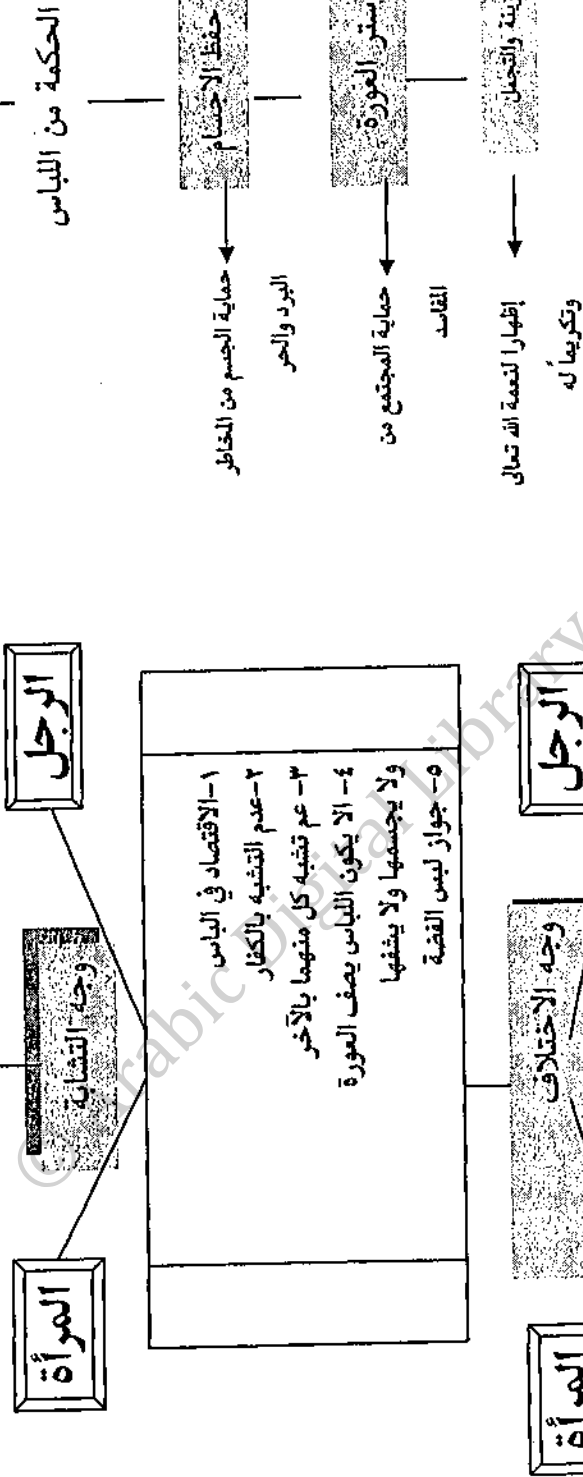 الحكمة من اللباس
حفظ الاجسام
حماية الجسم من المخاطر
البرد والحر
ستر العورة
حماية المجتمع من
المفاسد
والتجمل
إظهارا لنعمة الله تعالى
وتكريماً له
الرجل
وجه التشابة
المرأة
١-الاقتصاد في الباس
٢-عدم التشبه بالكفار
٣- عم تشبه كل منهما بالآخر
٤- الا يكون اللباس يصف العورة
ولا يجسمها ولا يشفها
٥- جواز لبس الفضة
الرجل
وجه الاختلاف
المرأة
© Arabic Digital Library